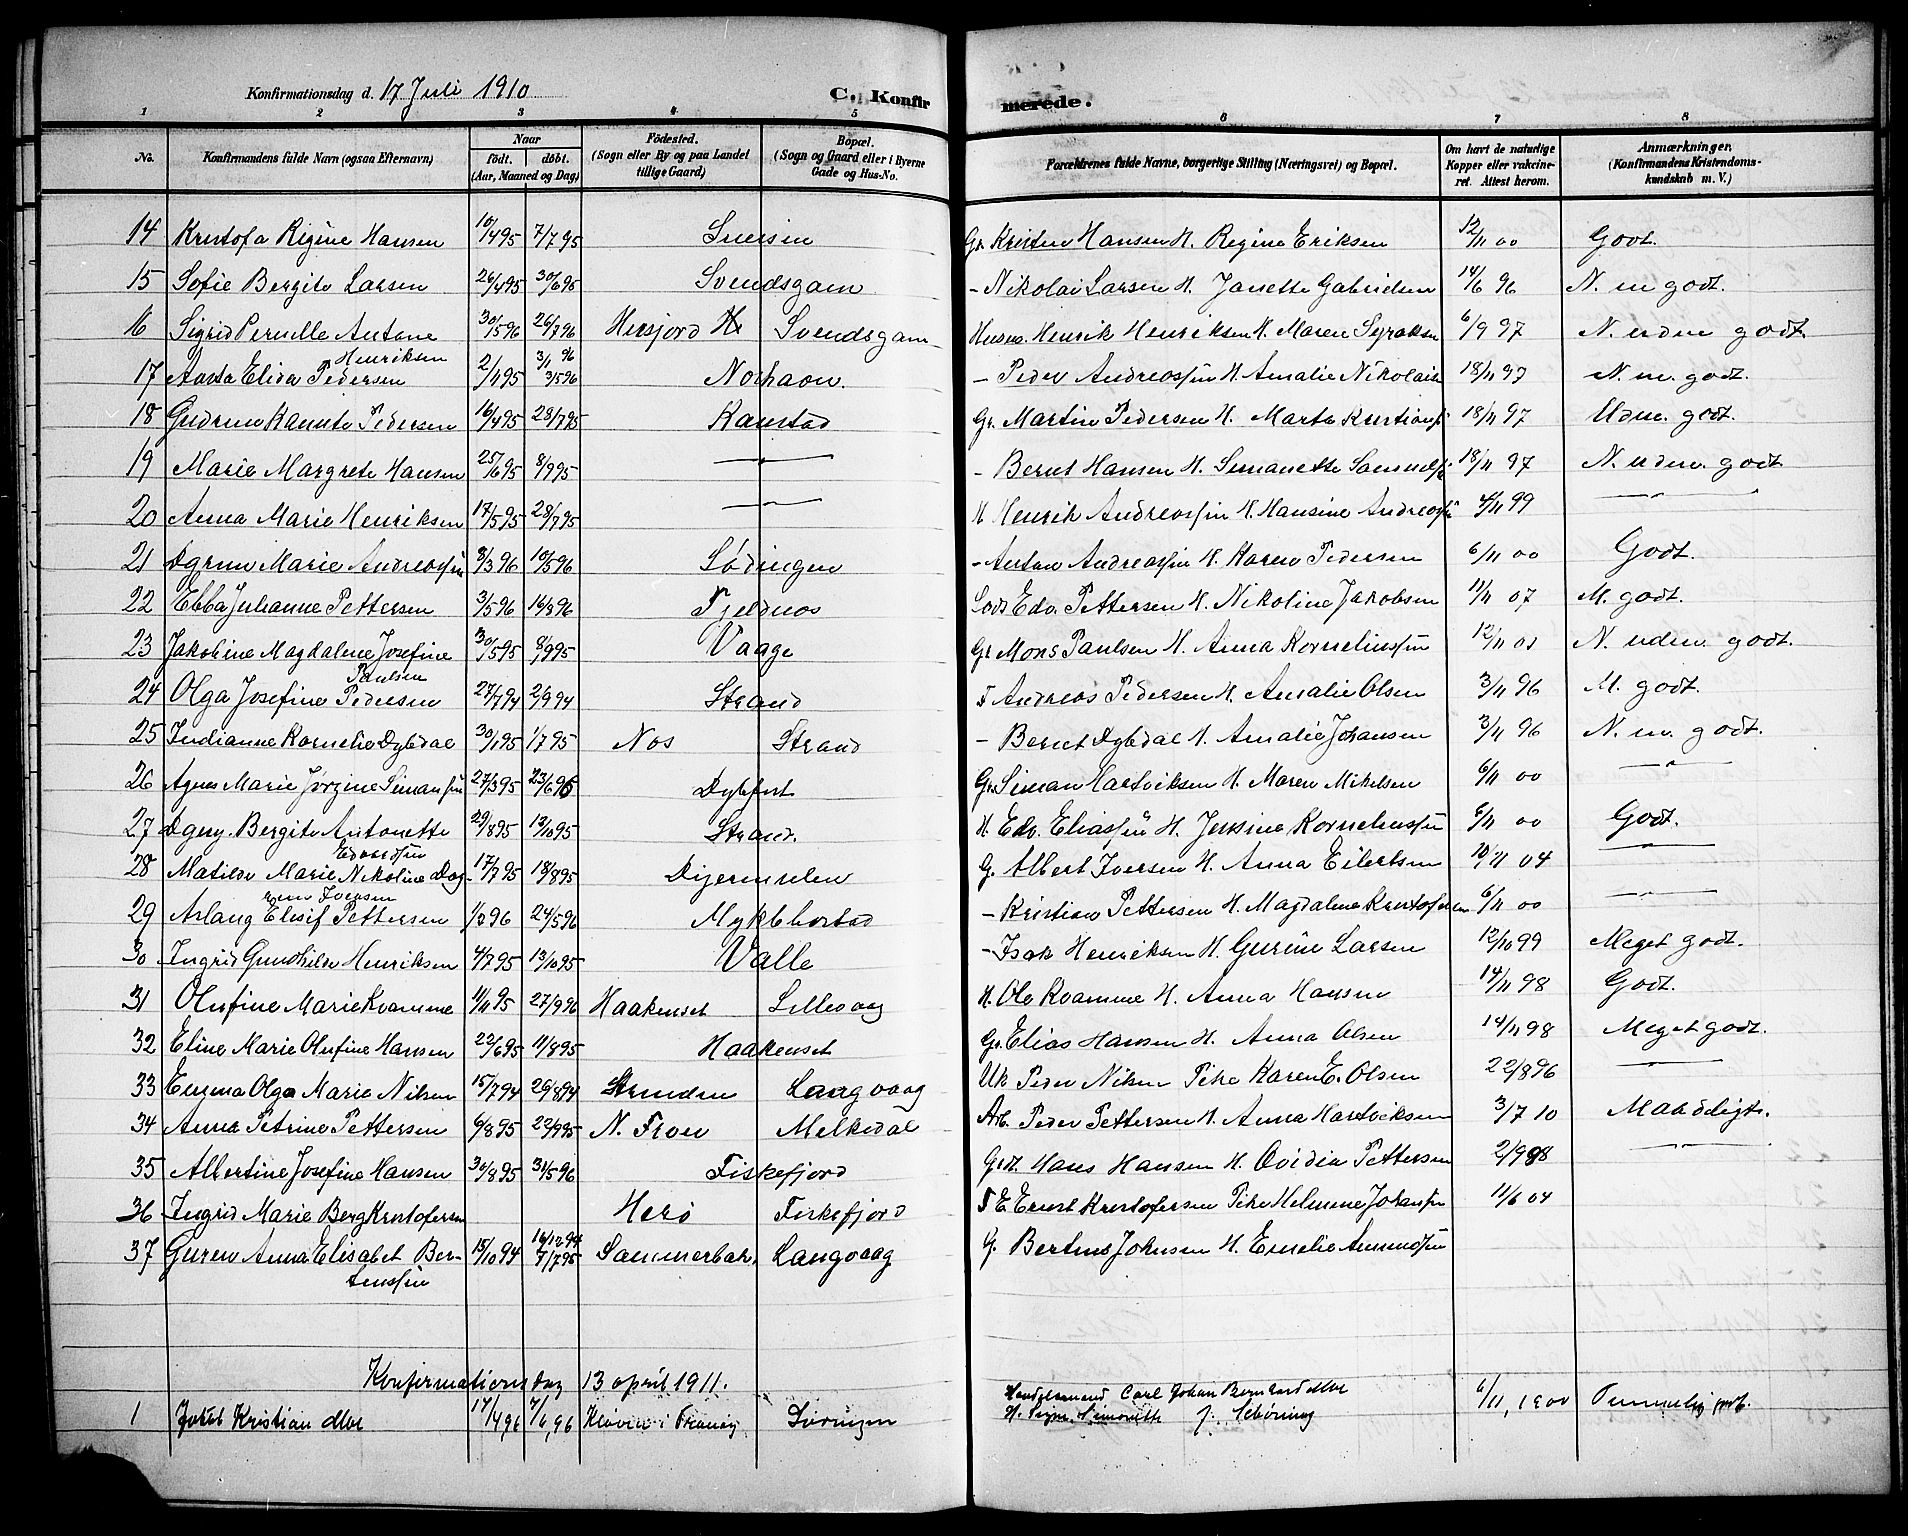 Konfirmationsdag d. 17 Juli 1910
C. Konfirmerede.
1 2 3 4 5 6 7 8
No. Konfirmandens fulde Navn (ogsaa Efternavn) Naar født. døbt. (Aar, Maaned og Dag) Fødested. (Sogn eller By og paa Landet tillige Gaard) Bopæl. (Sogn og Gaard eller i Byerne Gade og Hus-No. Forældrenes fulde Navne, borgerlige Stilling (Næringsvei) og Bopæl. Om havt de naturlige Kopper eller vakcineret. Attest herom. Anmærkninger. (Konfirmandens Kristendomskundskab m. V.)
14 Kristofa Regine Hansen 10/4 95 7/7 95 Gr. Kristen Hansen H. Regine Eriksen 12/11 00 Godt.
15 Sofie Bergite Larsen 26/4 95 30/6 95 Svendsgam - Nikolai Larsen H. Janette Gabrielsen 14/6 96 N. m godt.
16 Sigrid Pernille Antone Henriksen 30/5 96 26/7 96 Svendsgam Husm. Henrik Henriksen H. Maren 6/9 97 N. uden godt.
17 Aasta Elida Pedersen 2/11 95 3/1 96 3/5 96 - Peder Andreassen H. Amalie 18/11 97 N. m. godt.
18 Gudrun Pedersen 16/4 95 28/7 95 Kanstad Gr. Martin Pedersen H. Marta 18/11 97 godt.
19 Marie Margrete Hansen 25/6 95 8/9 95 — - Bernt Hansen H. Simanette 18/11 97 N. uden. godt
20 Anna Marie Henriksen 17/5 95 28/7 95 — H Henrik Andreassen H. Hansine 4/11 99 —
21 Marie Andreassen 8/3 96 10/5 96 Lødingen - Anton Andreassen H. Karen Pedersen 6/11 00 Godt.
22 Ebba Julianne Pettersen 3/5 96 16/8 96 Fjeldnes Lods Edv. Pettersen H. Nikoline Jakobsen 11/11 07 M. godt.
23 Jakobine Magdalene Josefine Paulsen 30/5 95 8/9 95 Vaage Gr Mons Paulsen H. Anna Korneliussen 12/11 01 N. uden godt.
24 Olga Josefine Pedersen 27/7 94 2/9 94 Strand F Andreas Pedersen H. Amalie Olsen 3/11 96 M. godt.
25 Indianne Kornelie Dybdal 30/1 95 1/7 95 Nes Strand - Bernt Dybdal H. Amalie Johansen 3/11 96 N. m. godt.
26 Agnes Marie Jørgine Simansen 27/3 95 23/6 95 Dybfest Gr. Siman Hartviksen H. Maren Mikelsen 6/11 00 —
27 Dagny. Bergite Antonette Edvardsen 29/8 95 13/10 95 Strand. H. Edv. Eliassen H. Jensine Korneliussen 6/11 00 Godt.
28 Matilde Marie Nikoline Iversen 17/7 95 18/8 95 Djermelen G. Albert Iversen H. Anna Eilertsen 10/11 04 —
29 Aslaug Elesif Pettersen 1/2 96 24/5 96 Mykkbostad - Kristian Pettersen H. Magdalene Kristofersen 6/11 00 —
30 Ingrid Gunhilde Henriksen 4/7 95 13/10 95 Valle - Isak Henriksen H. Gurine Larsen 12/10 99 Meget godt.
31 Olufine Marie Kvamme 11/11 95 27/9 96 Haakenset Lillevaag H. Ole Kvamme H. Anna Hansen 14/11 98 Godt.
32 Eline Marie Olufine Hansen 22/6 95 11/8 95 Haakenset Gr. Elias Hansen H. Anna Olsen 14/11 98 Meget godt.
33 Emma Olga Marie Nilsen 15/7 94 26/8 94 Stranden Laagvaag Uk Peder Nilsen Pike Karen E. Olsen 22/8 96 —
34 Anna Petrine Pettersen 6/8 95 22/9 95 N. Fron Melkedal Arb. Peder Pettersen H. Anna Hartviksen 3/7 10 Maadeligt.
35 Albertine Josefine Hansen 30/8 95 31/5 96 Fiskefjord Hans Hansen H. Ovidia Pettersen 2/9 98 —
36 Ingrid Marie Berg Kristofersen Herø Fiskefjord F E Ernst Kristofersen Pike Helmine Johansen 11/6 04
37 Guren Anna Elisabet Bertenssen 15/10 94 16/12 94 7/7 95 Langvaag G. Bertius Johnsen H. Emelie Amundsen
Konfirmationsdag 13 april 1911.
1 Jakob Kristian Moe 17/4, 96 7/6, 96 i Tranøy Handelsmand Carl Johan Bernhard Moe
H. Signe Simonette f. Schøning 6/11, 1900